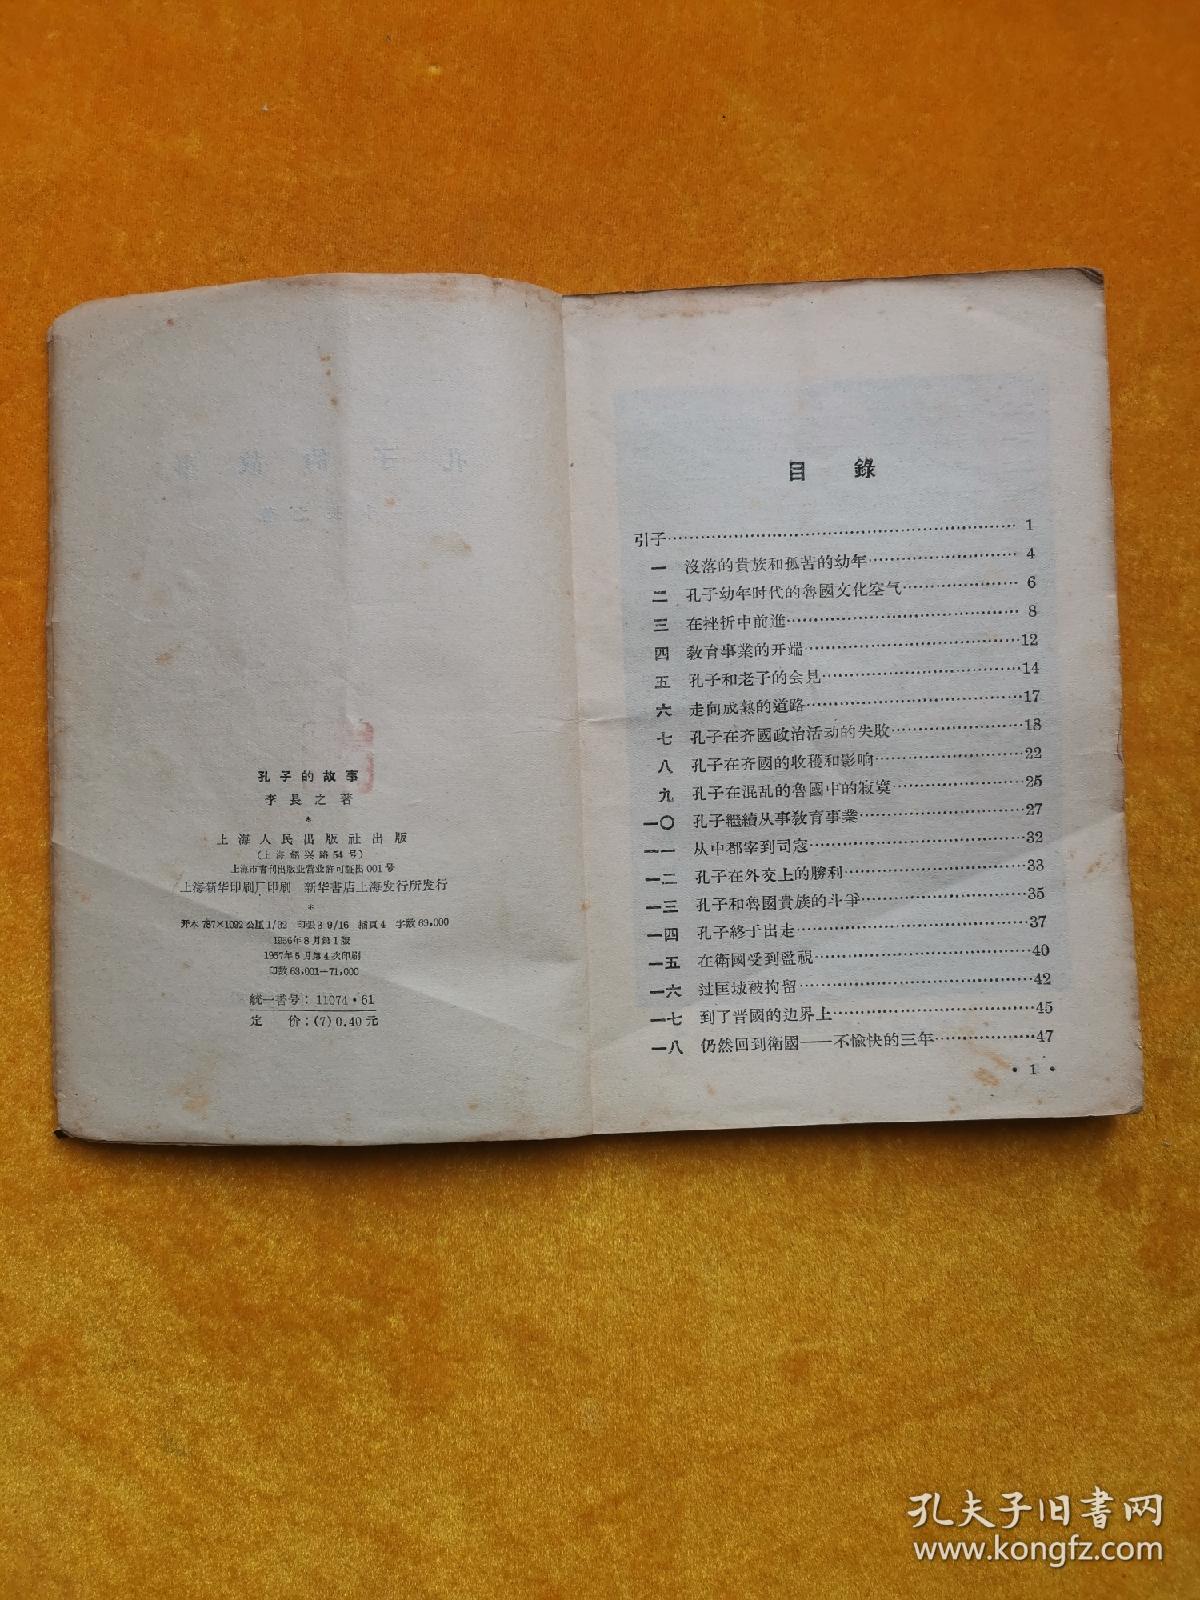 孔子的故事
李長之著
*
上海人民出版社出版
(上海紹兴路54号)
上海市書刊出版业营业許可証出001号
上海新华印刷厂印刷 新华書店上海发行所发行
*
开本 787×1092 公厘 1/32 印張 3 9/16 插頁 4 字数 69,000
1956年8月第1版
1957年5月第4次印刷
印数 63,001—71,000
統一書号：11074·61
定 价：(7) 0.40 元
目 錄
引子 1
一 沒落的貴族和孤苦的幼年 4
二 孔子幼年时代的魯國文化空气 6
三 在挫折中前進 8
四 敎育事業的开端 12
五 孔子和老子的会見 14
六 走向成熟的道路 17
七 孔子在齐國政治活动的失敗 18
八 孔子在齐國的收穫和影响 22
九 孔子在混乱的魯國中的寂寞 25
一〇 孔子繼續从事敎育事業 27
一一 从中都宰到司寇 32
一二 孔子在外交上的勝利 33
一三 孔子和魯國貴族的斗爭 35
一四 孔子終于出走 37
一五 在衛國受到監視 40
一六 过匡城被拘留 42
一七 到了晋國的边界上 45
一八 仍然回到衛國——不愉快的三年 47
• 1 •
孔夫子旧書网
www.kongfz.com